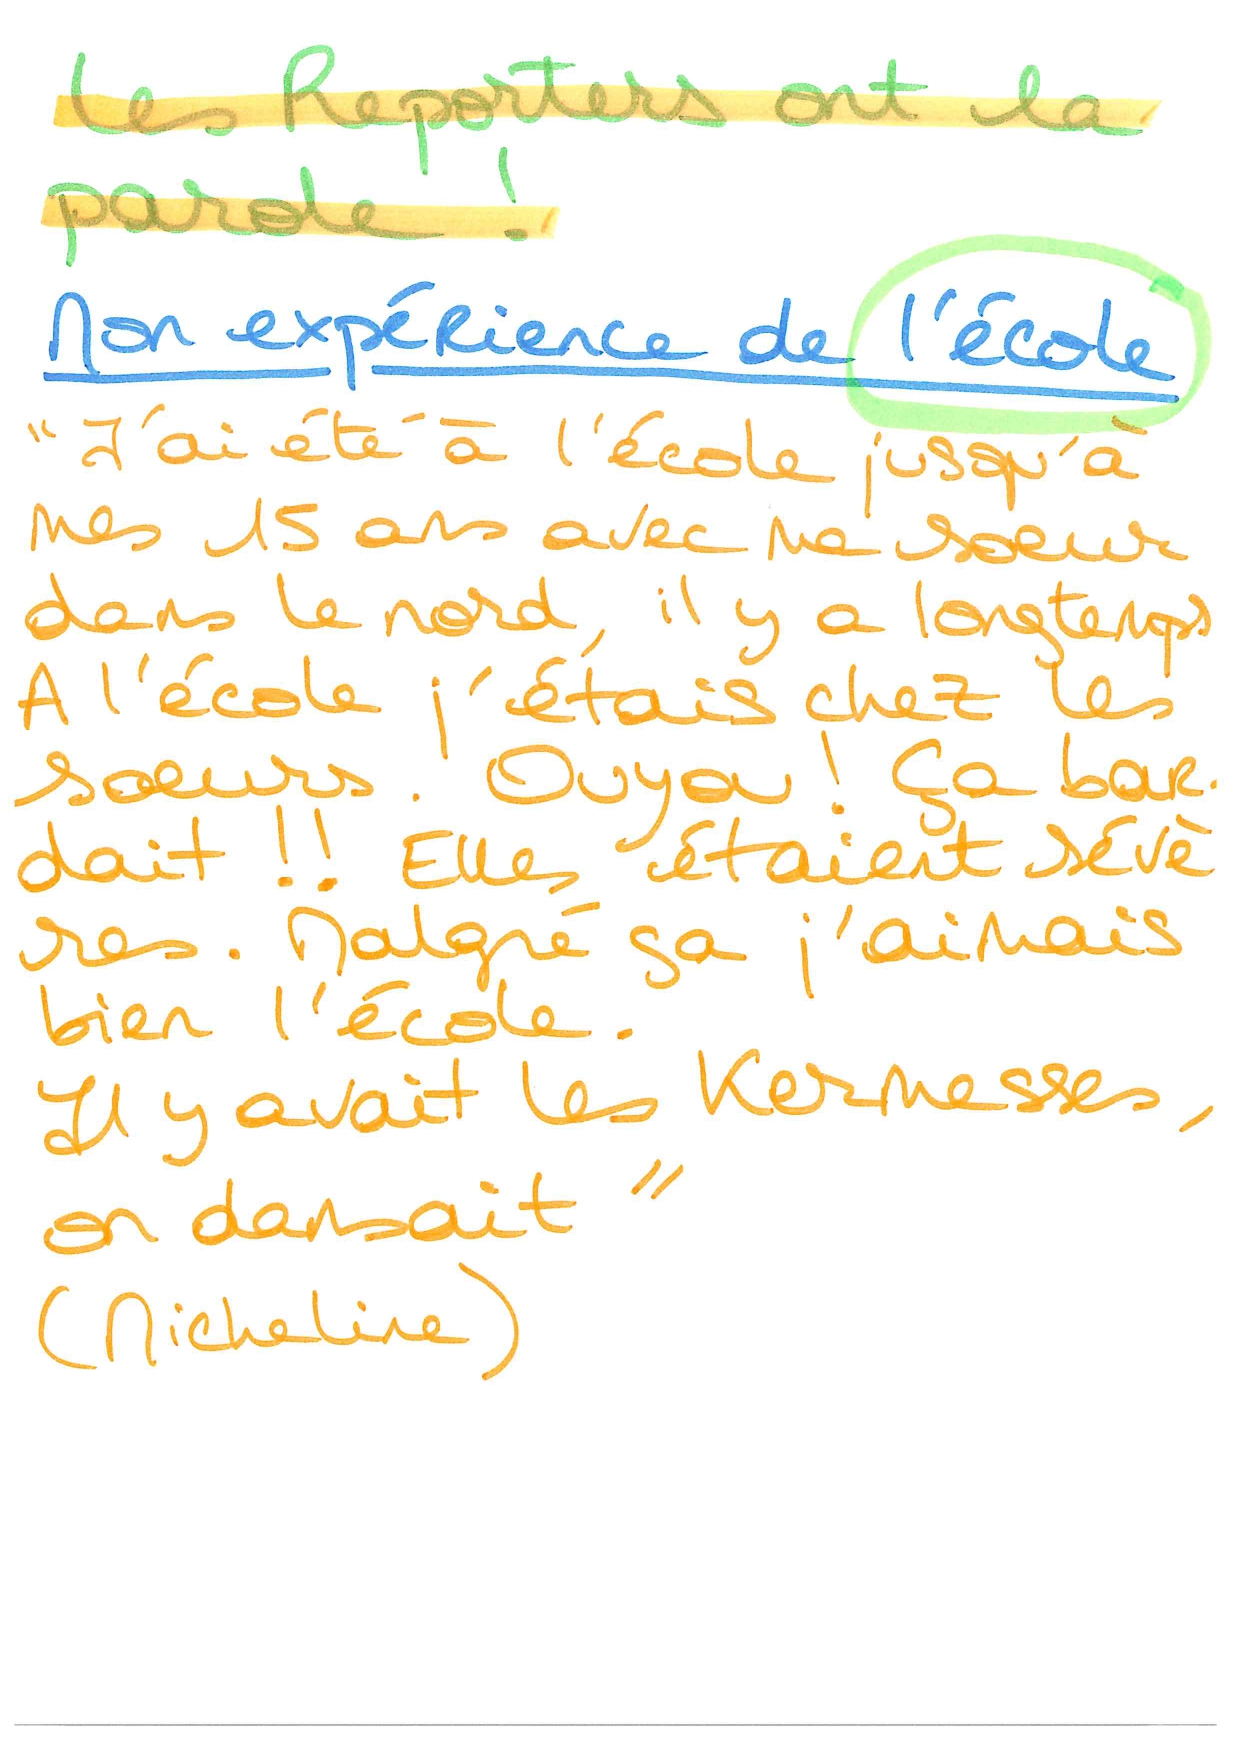 Les Reporters ont la
parole !
Mon expérience de l'école
"J'ai été à l'école jusqu'à
mes 15 ans avec ma soeur
dans le nord, il y a longtemps
A l'école j'étais chez les
soeurs. Ouyou ! Ça bar-
dait !! Elles étaient sévè
res. Malgré ça j'aimais
bien l'école.
Il y avait les Kermesses,
on dansait "
(Micheline)